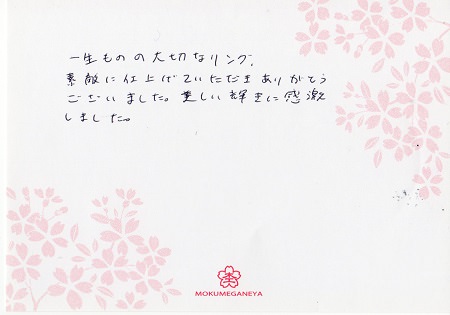 一生ものの大切なリング、
素敵に仕上げていただきありがとう
ございました。美しい輝きに感激
しました。
MOKUMEGANEYA